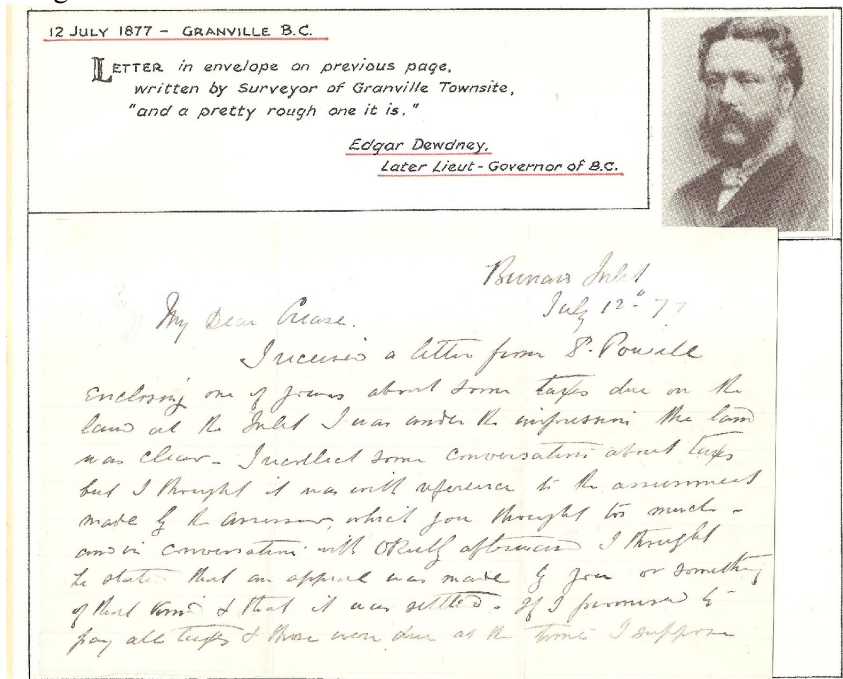 12 JULY 1877 - GRANVILLE B.C.
LETTER in envelope on previous page,
written by Surveyor of Granville Townsite,
"and a pretty rough one it is."
Edgar Dewdney,
Later Lieut-Governor of B.C.
Burrard Inlet
July 12" 77
My Dear Crease.
I received a letter from P. Powell
enclosing one of yours about some taxes due on the
land at the Inlet I was under the impression the land
was clear - I recollect some conversation about taxes
but I thought it was with reference to the assessment
made by the assessor, which you thought too much -
and in conversation with afterwards I thought
he stated that an appeal was made by you or something
of that kind & that it was settled - If I promised to
pay all taxes & those were due at the time I suppose